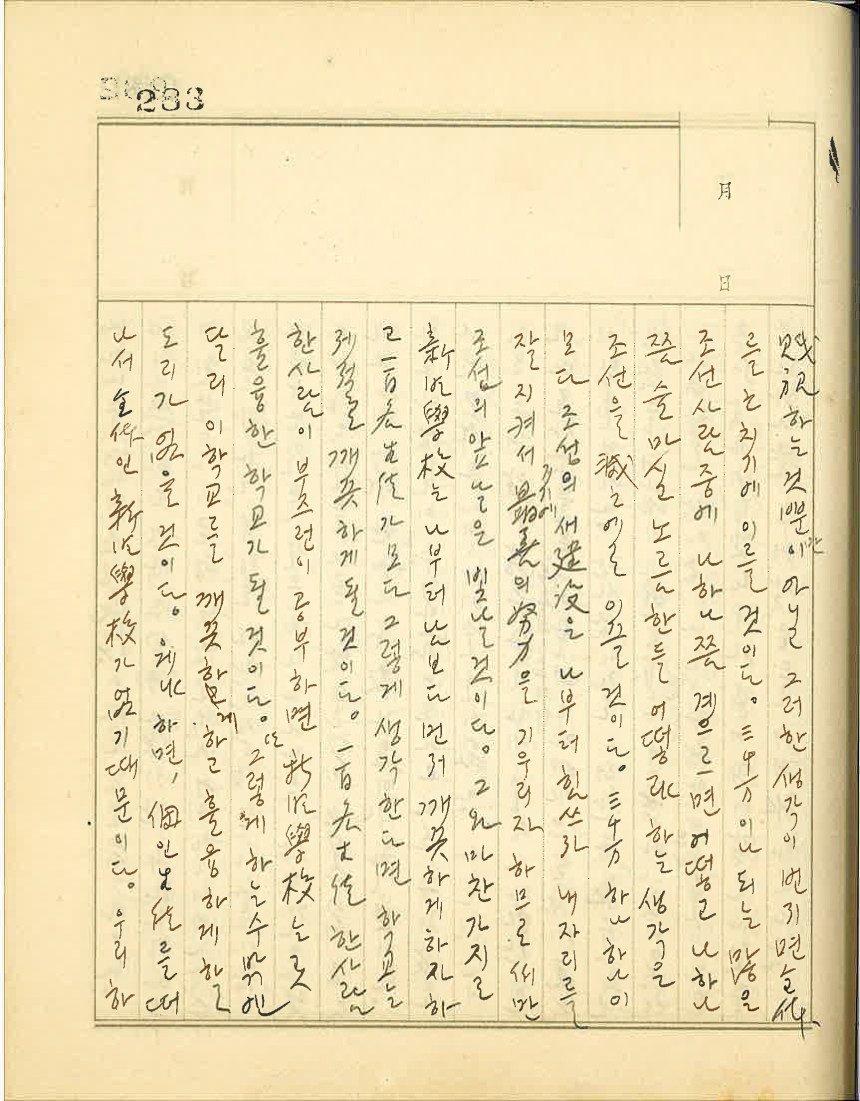 283
月
日
賤視하는 것뿐만이 아닐 그러한 생각이 번지면 全体
를 는 치기에 이를 것이다. 三千万이나 되는 많은
조선사람 중에 나하나쯤 게으르면 어떻고 나하나
쯤 술 마실 노름한들 어떻랴 하는 생각은
조선을 는에로 이끌 것이다. 三千万 하나하나이
모다 조선의 새 建設은 나부터 힘쓰라 내 자리를
잘 지켜서 거기에 最善의 努力을 기우리자 하므로써만
조선의 앞날은 빛날 것이다. 그와 마찬가지로
新明學校는 나부터 남보다 먼저 깨끗하게 하자 하
고 一百 生徒가 모다 그렇게 생각한다면 학교는
제절로 깨끗하게 될 것이다. 一百 生徒 한사람
한사람이 부즈런이 공부하면 新明學校는 곳
훌융한 학교가 될 것이다. 또 그렇게 하는 수밖엔
달리 이 학교를 깨끗하게 하고 훌융하게 할
도리가 없을 것이다. 웨냐 하면, 個人生徒를 떠
나서 全体인 新明學校가 없기 때문이다. 우리 하